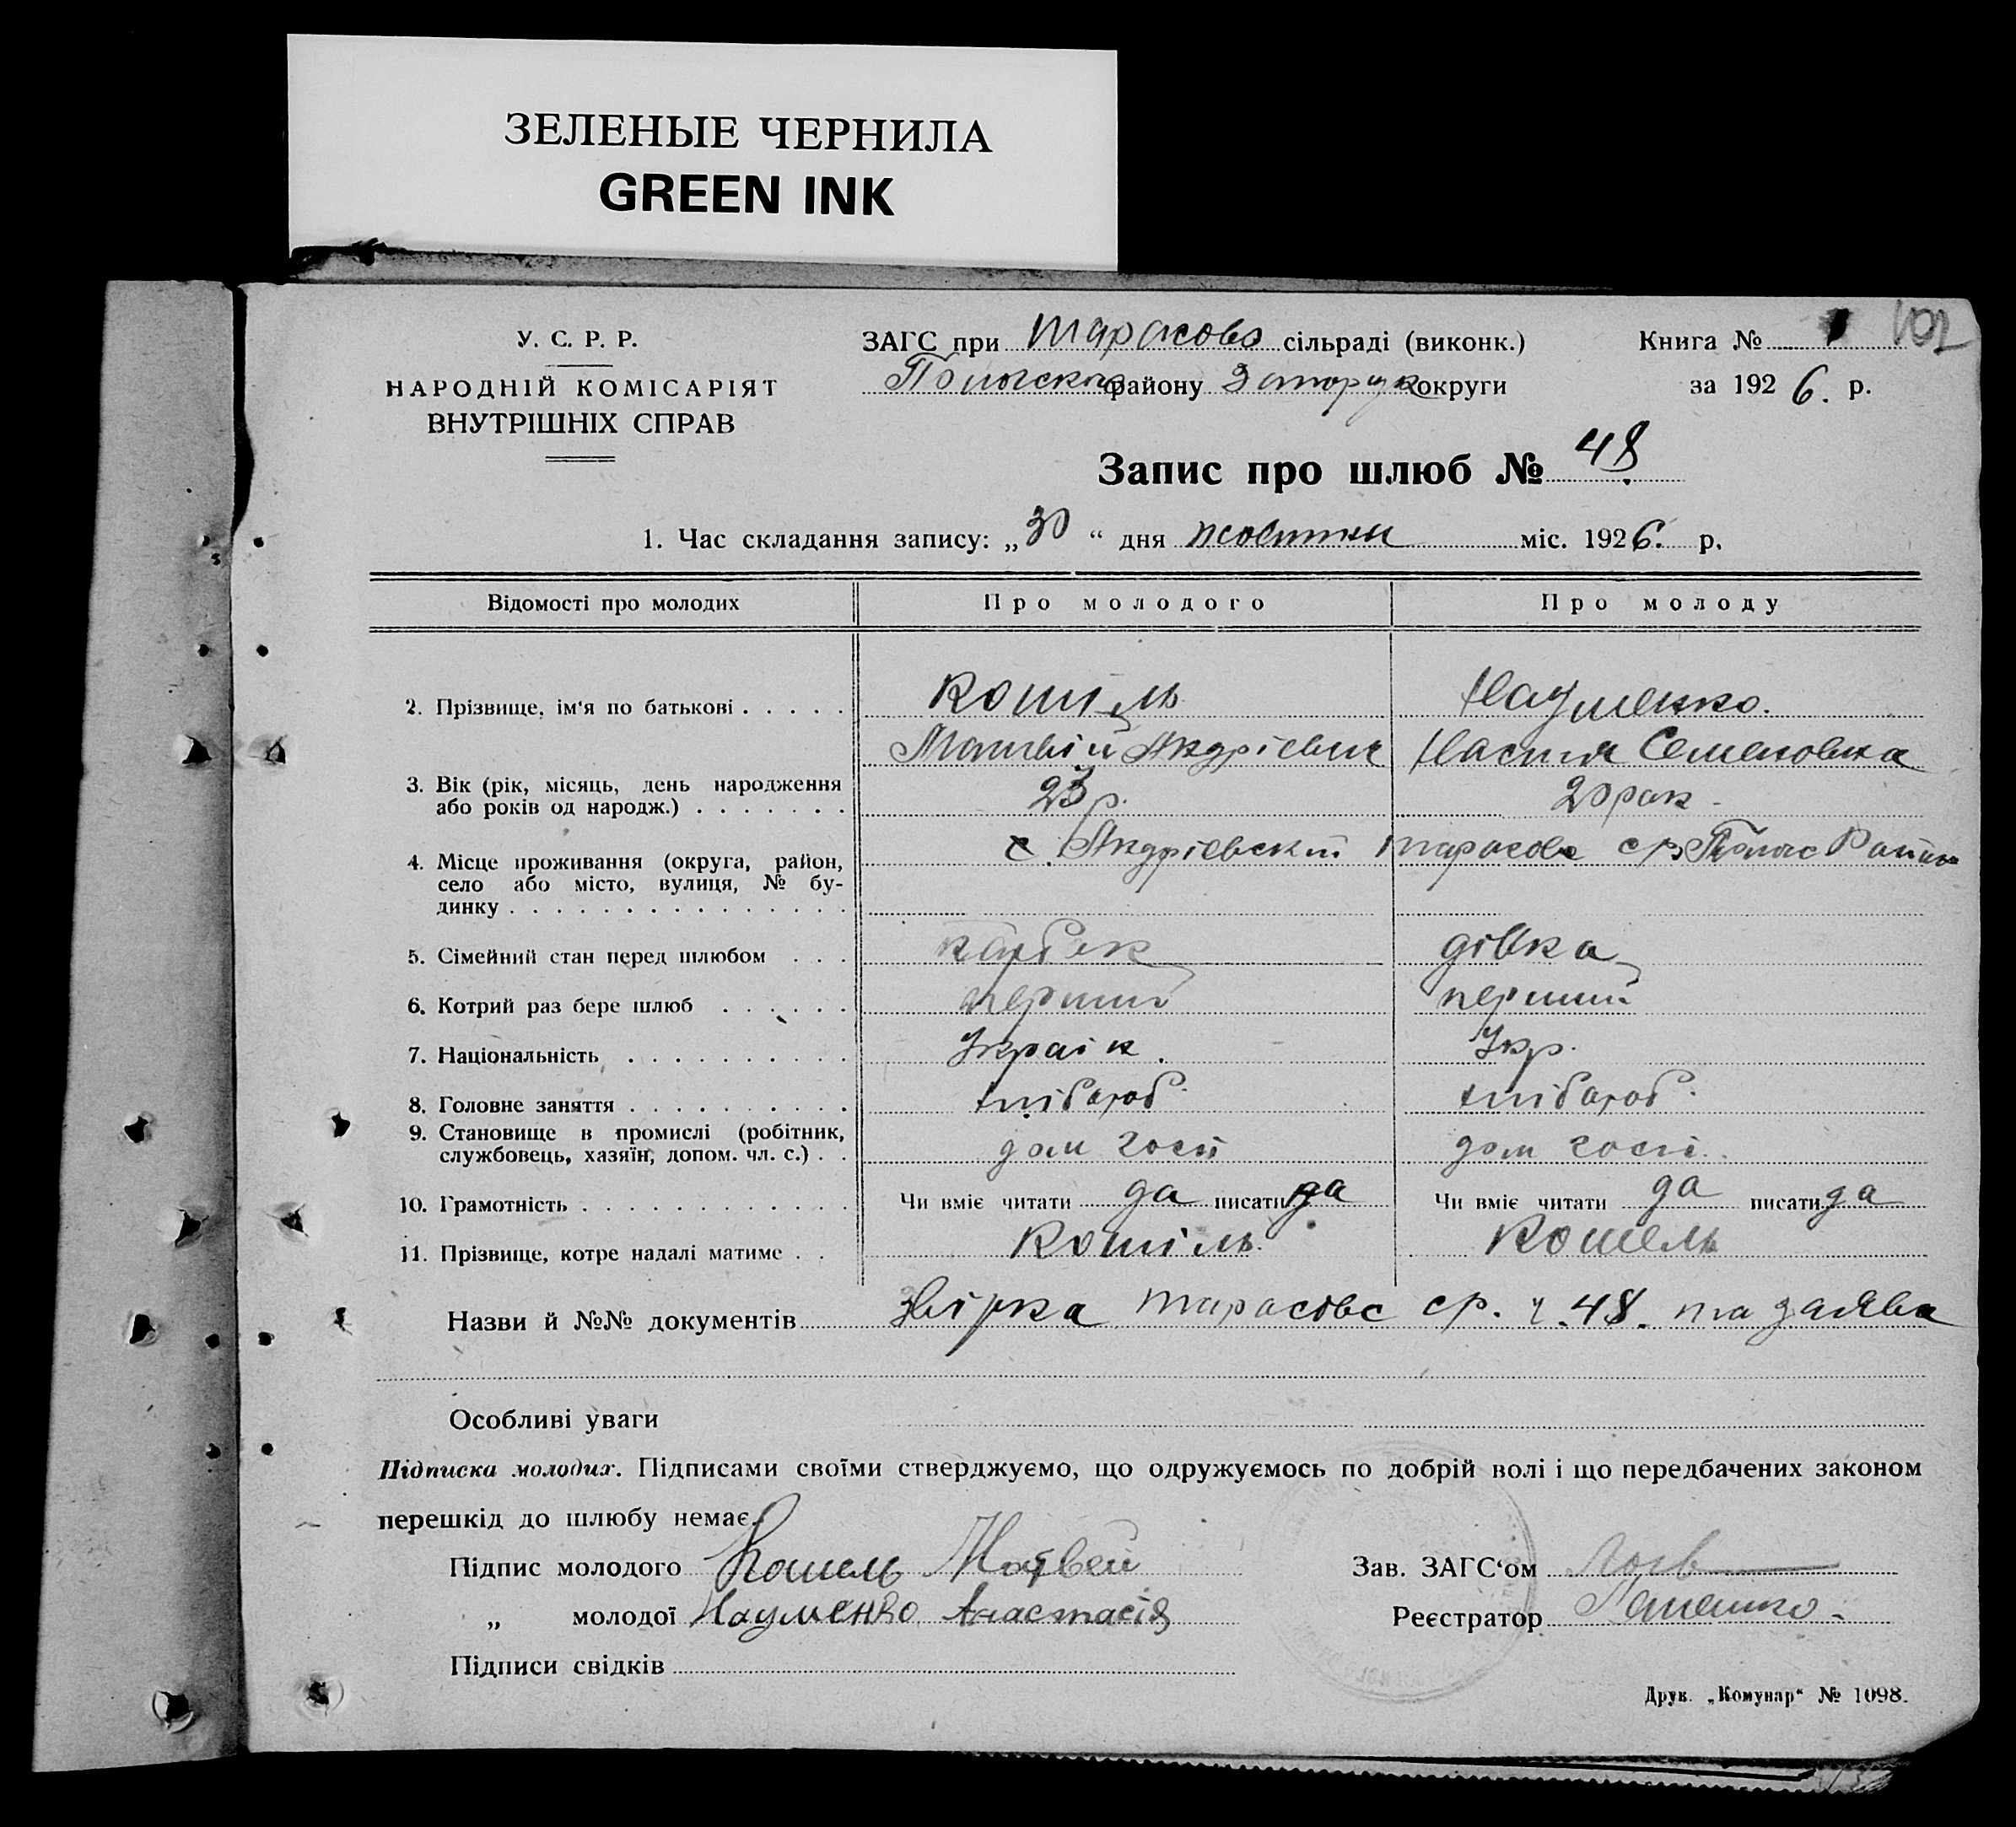 ЗЕЛЕНЫЕ ЧЕРНИЛА
GREEN INK
102
У. С. Р. Р.
НАРОДНІЙ КОМІСАРІЯТ
ВНУТРІШНІХ СПРАВ
ЗАГС при Тарасовс сільраді (виконк.)
району округи
Книга №
за 1926. р.
Запис про шлюб № 48.
1. Час складання запису: „30“ дня жовтня міс. 1926. р.
Відомості про молодих Про молодого Про молоду
2. Прізвище, ім‘я по батькові . . . . . Кошіль Науменко.
Матвій Андрієвич Настя Семеновна
3. Вік (рік, місяць, день народження
або років од народж.) . . . . . . . 23 р. 20 рок
4. Місце проживання (округа, район, с. Андрієвский Тарасовс с/р Полог Район
село або місто, вулиця, № бу-
динку . . . . . . . . . . . . . . .
5. Сімейний стан перед шлюбом . . . дівка
6. Котрий раз бере шлюб . . . . . . перший перший
7. Національність . . . . . . . . . . Україн. Укр.
8. Головне заняття . . . . . . . . . . хлібороб. хлібороб.
9. Становище в промислі (робітник,
службовець, хазяїн, допом. чл. с.) . . дом госп дом госп.
10. Грамотність . . . . . . . . . . . . Чи вміє читати да писати да Чи вміє читати да писати да
11. Прізвище, котре надалі матиме . . Кошіль. Кошель
Назви й №№ документів звірка Тарасовс ср. ч. 48. та заява
Особливі уваги
Підписка молодих. Підписами своїми стверджуємо, що одружуємось по добрій волі і що передбачених законом
перешкід до шлюбу немає.
Підпис молодого Кошель Матвей
Зав. ЗАГС‘ом
„ молодої Науменко Анастасія
Реєстратор
Підписи свідків
Друк. „Комунар“ № 1098.